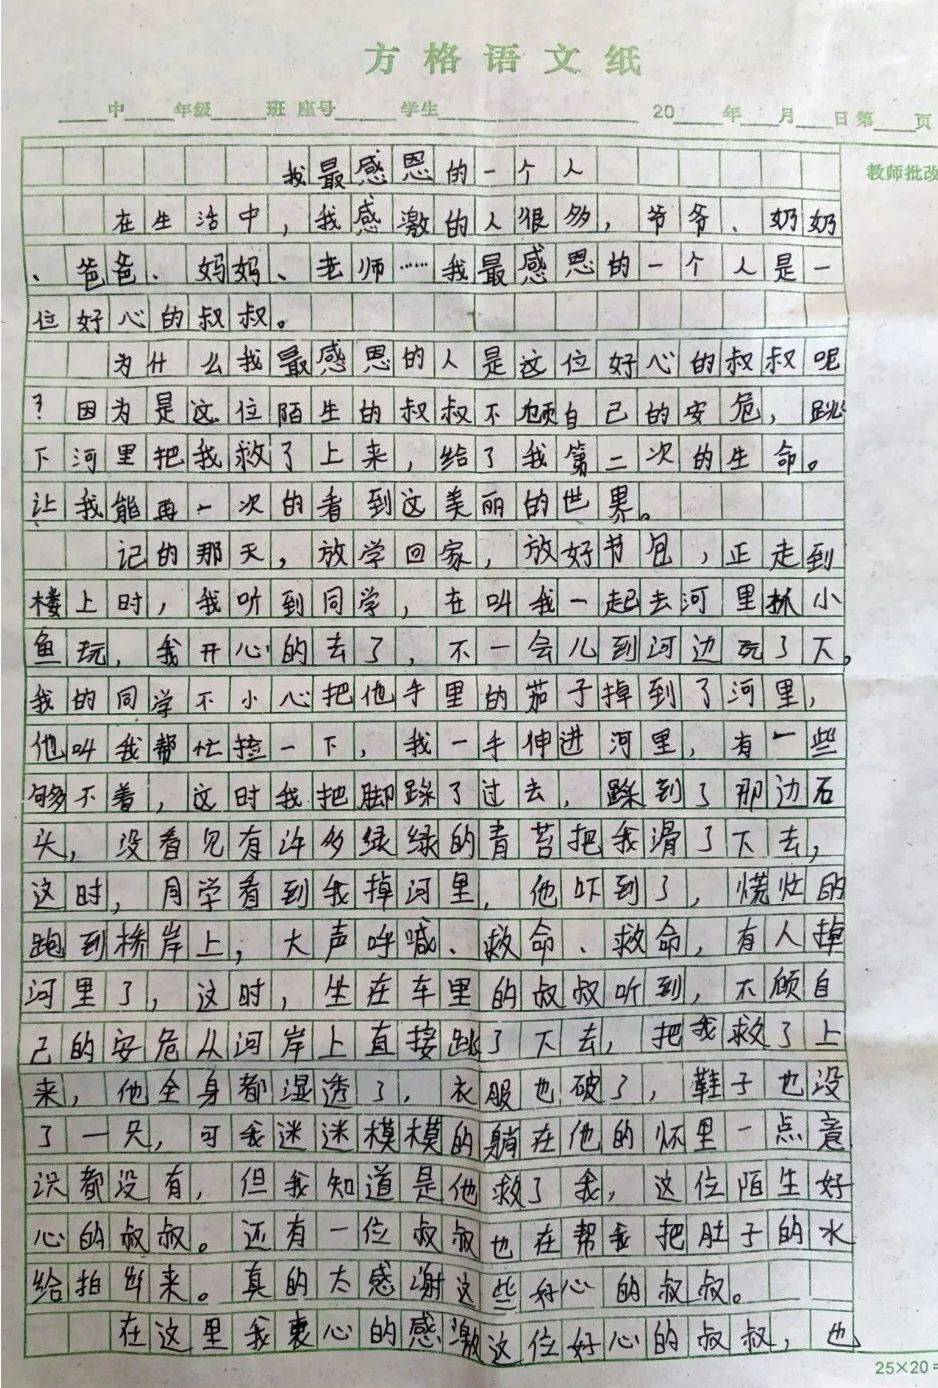 方格语文纸
中 年级 班 座号 学生 20 年 月 日 第 页
教师批改
我最感恩的一个人
在生活中，我感激的人很多，爷爷、奶奶
、爸爸、妈妈、老师……我最感恩的一个人是一
位好心的叔叔。
为什么我最感恩的人是这位好心的叔叔呢
？因为是这位陌生的叔叔不顾自己的安危，跳
下河里把我救了上来，给了我第二次的生命。
让我能再一次的看到这美丽的世界。
记的那天，放学回家，放好书包，正走到
楼上时，我听到同学，在叫我一起去河里抓小
鱼玩，我开心的去了，不一会儿到河边玩了下。
我的同学不小心把他手里的茄子掉到了河里，
他叫我帮忙捡一下，我一手伸进河里，有一些
够不着，这时我把脚踩了过去，踩到了那边石
头，没看见有许多绿绿的青苔把我滑了下去，
这时，同学看到我掉河里，他吓到了，慌忙的
跑到桥岸上，大声呼喊、救命、救命，有人掉
河里了，这时，坐在车里的叔叔听到，不顾自
己的安危从河岸上直接跳了下去，把我救了上
来，他全身都湿透了，衣服也破了，鞋子也没
了一只，可我迷迷模模的躺在他的怀里一点意
识都没有，但我知道是他救了我，这位陌生好
心的叔叔。还有一位叔叔也在帮我把肚子的水
给拍出来。真的太感谢这些好心的叔叔。
在这里我衷心的感激这位好心的叔叔，也
25×20=